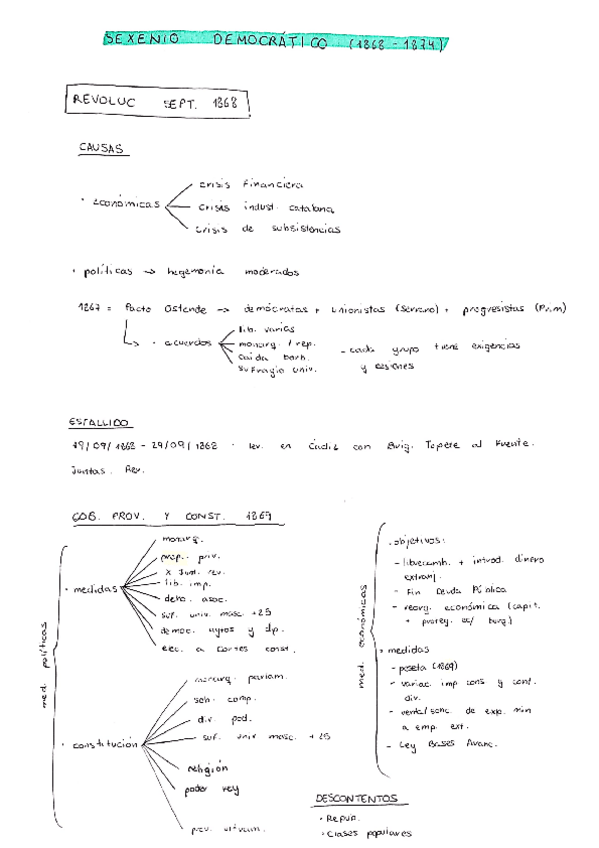 SEXENIO DEMOCRÁTICO (1868 - 1874)
REVOLUC SEPT. 1868
CAUSAS
· económicas
crisis financiera
crisis indust. catalana
crisis de subsistencias
· políticas → hegemonía moderados
1867 = Pacto Ostende → demócratas + unionistas (Serrano) + progresistas (Prim)
· acuerdos
lib. varias
monarq. / rep.
caída borb.
sufragio univ.
- cada grupo tiene exigencias
y cesiones
ESTALLIDO
19/09/1868 - 29/09/1868 · lev. en Cádiz con Topete al frente.
Juntas Rev.
GOB. PROV. Y CONST. 1869
med. políticas
· medidas
monarq.
prop. priv.
x Junt. rev.
lib. imp.
dcho. asoc.
suf. univ. masc. +25
democ. aytos y dp.
elec. a Cortes const.
· constitución
monarq. parlam.
sob. comp.
div. pod.
suf. univ masc. +25
religión
poder rey
prov. ultram.
med. económicas
· objetivos:
- librecamb. + introd. dinero
extranj.
- Fin Deuda Pública
- reorg. económica (capit.
+ burg.)
· medidas
- peseta (1869)
- variac. imp cons y cont.
div.
- venta/conc. de exp. min
a emp. ext.
- Ley Bases Aranc.
DESCONTENTOS
· Repub.
· Clases populares